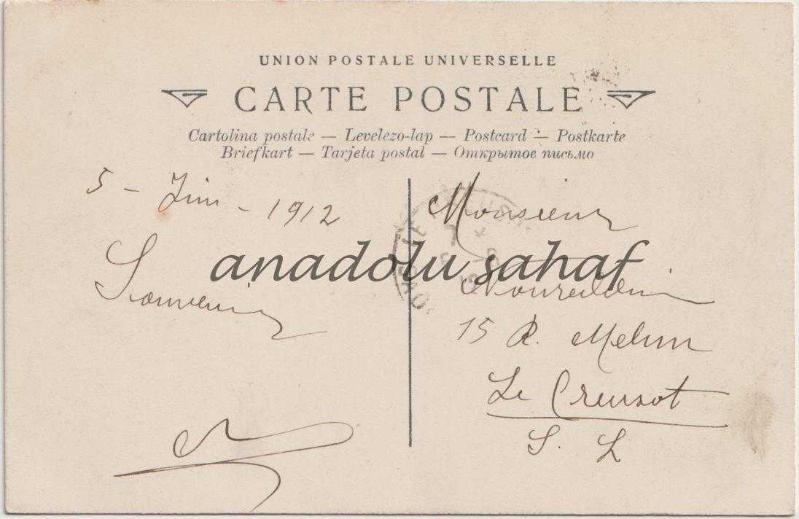 UNION POSTALE UNIVERSELLE
CARTE POSTALE
Cartolina postale — Levelezo-lap — Postcard — Postkarte
Briefkart — Tarjeta postal — Открытое письмо
5 - Juin - 1912
Souvenir
Monsieur
Noureddin
15 R. Melun
Le Creusot
S. L
anadolu sahaf